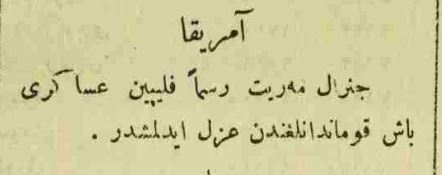 آمریقا
جنرال مەریت رسماً فلیپین عسا کری
باش قوماندانلغندن عزل ایدلمشدر .